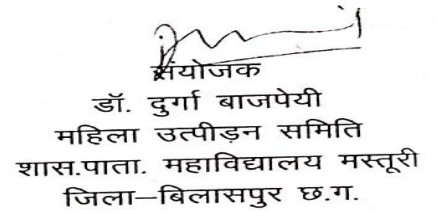 संयोजक
डॉ. दुर्गा बाजपेयी
महिला उत्पीड़न समिति
शास.पाता. महाविद्यालय मस्तूरी
जिला–बिलासपुर छ.ग.